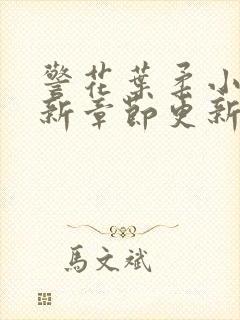 警花葉柔小
新章節更新
馬文斌